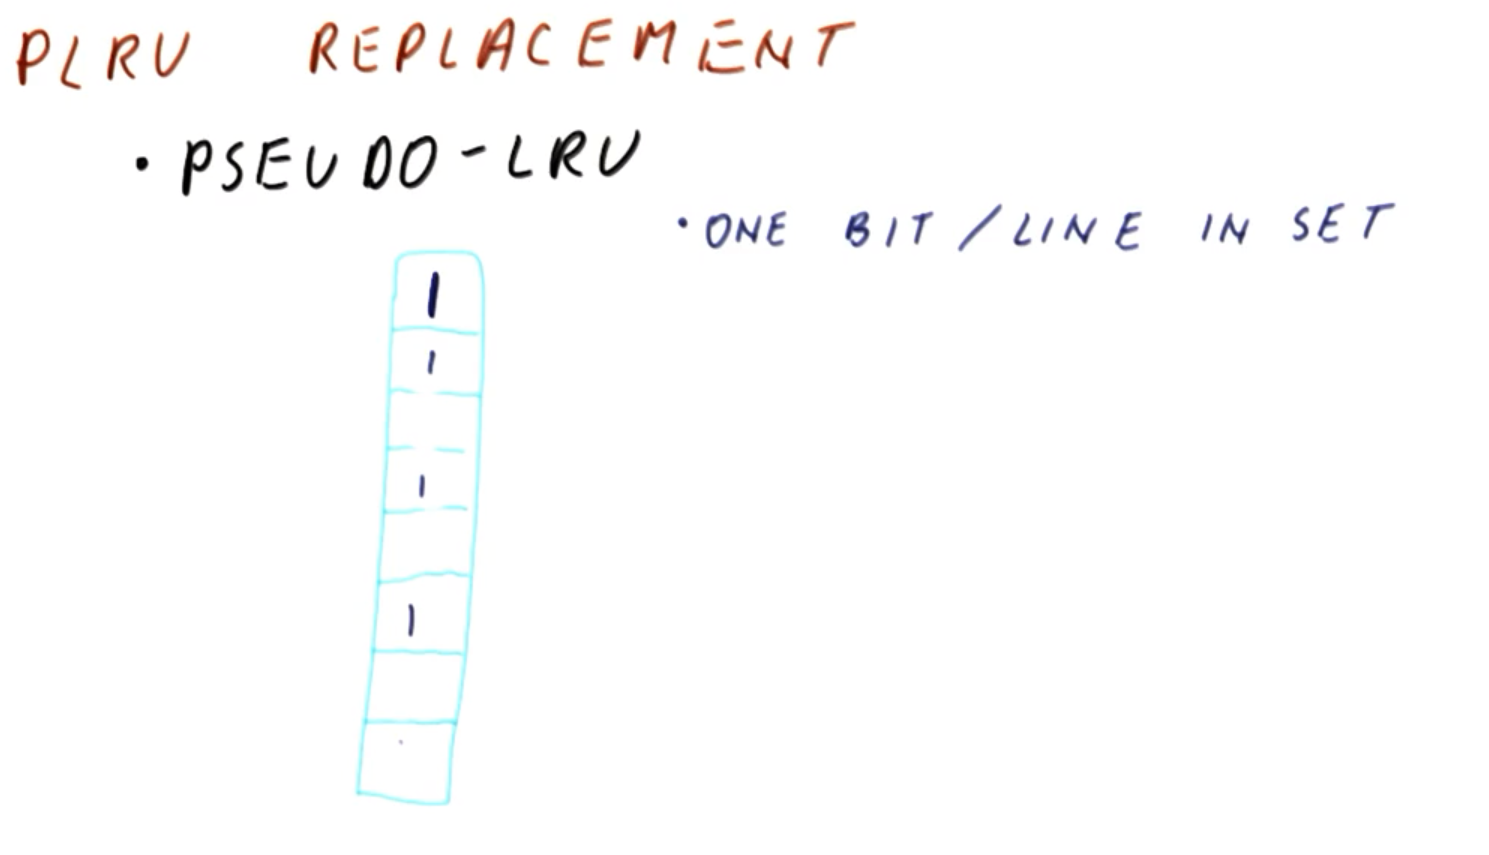 PLRU REPLACEMENT
• PSEUDO-LRU
• ONE BIT / LINE IN SET
1
1
1
1